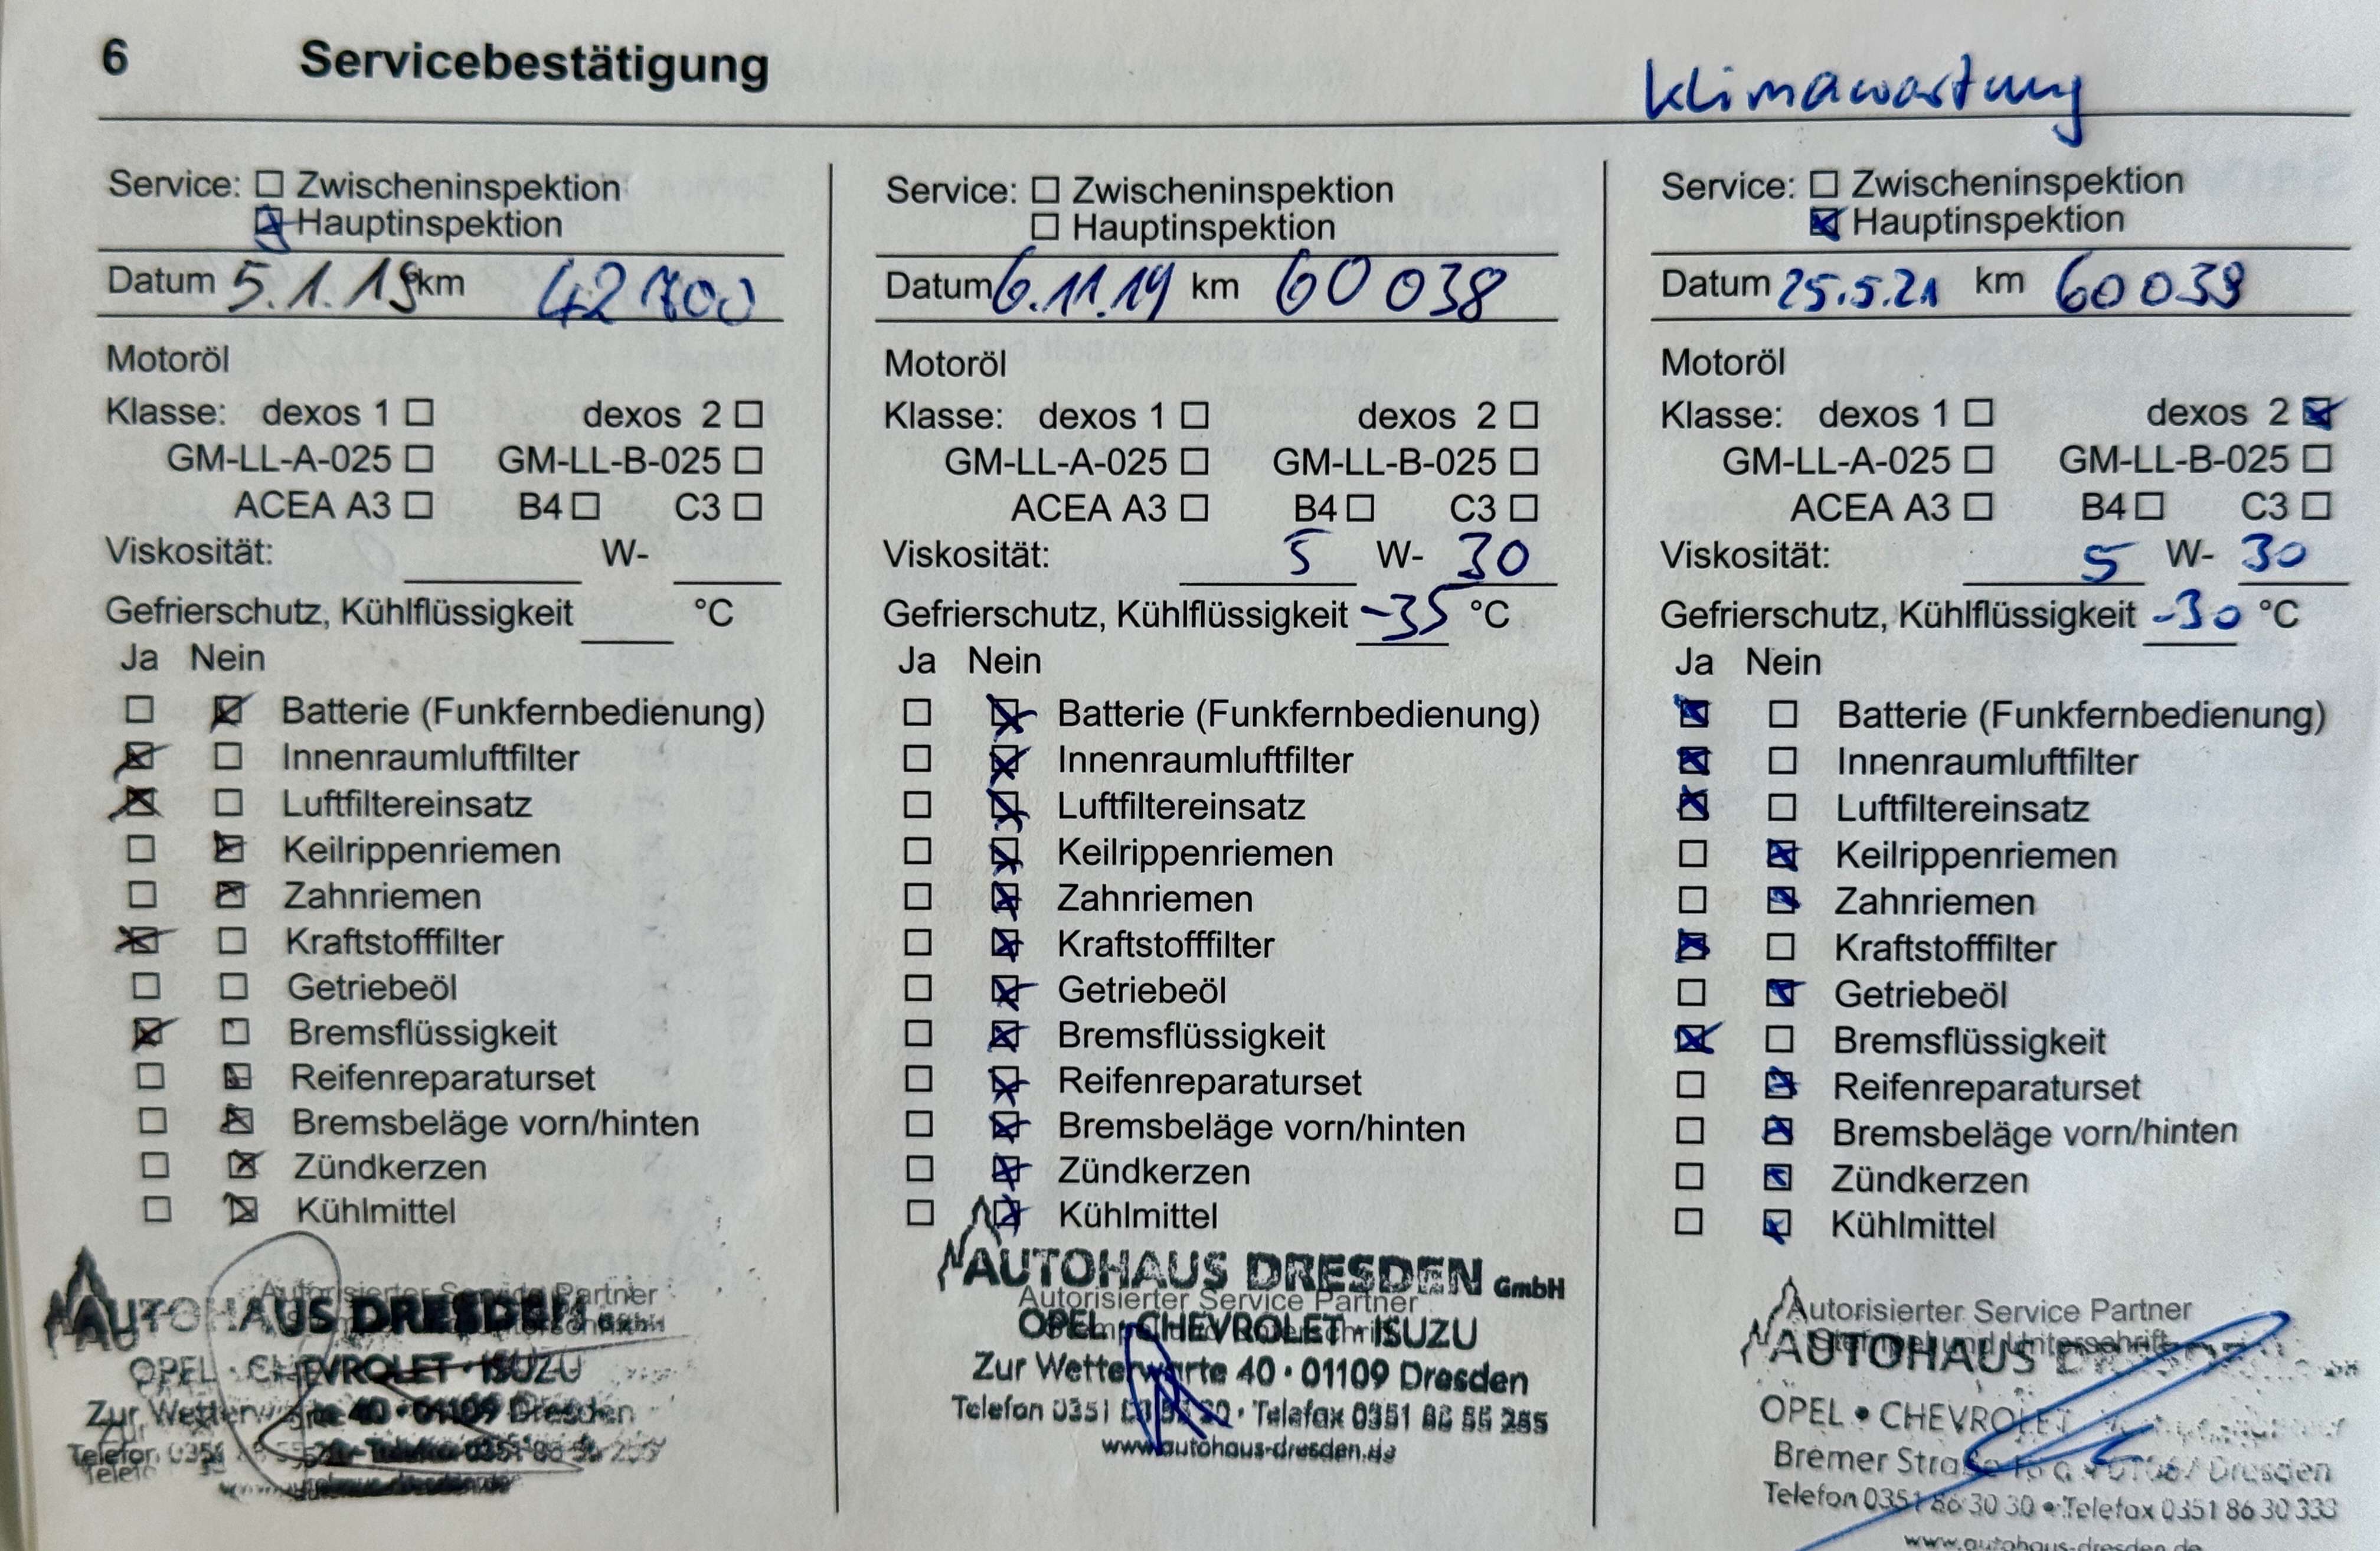 6 Servicebestätigung
Klimawartung
Service: ☐ Zwischeninspektion
☒ Hauptinspektion
Datum 5.1.19 km 42700
Motoröl
Klasse: dexos 1 ☐ dexos 2 ☐
GM-LL-A-025 ☐ GM-LL-B-025 ☐
ACEA A3 ☐ B4 ☐ C3 ☐
Viskosität: W-
Gefrierschutz, Kühlflüssigkeit °C
Ja Nein
☐ ☒ Batterie (Funkfernbedienung)
☒ ☐ Innenraumluftfilter
☒ ☐ Luftfiltereinsatz
☐ ☒ Keilrippenriemen
☐ ☒ Zahnriemen
☒ ☐ Kraftstofffilter
☐ ☐ Getriebeöl
☒ ☐ Bremsflüssigkeit
☐ ☒ Reifenreparaturset
☐ ☒ Bremsbeläge vorn/hinten
☐ ☒ Zündkerzen
☐ ☒ Kühlmittel
Autorisierter Service Partner
AUTOHAUS DRESDEN GmbH
OPEL · CHEVROLET · ISUZU
Zur Wetterwarte 40 · 01109 Dresden
Service: ☐ Zwischeninspektion
☐ Hauptinspektion
Datum 6.11.19 km 60 038
Motoröl
Klasse: dexos 1 ☐ dexos 2 ☐
GM-LL-A-025 ☐ GM-LL-B-025 ☐
ACEA A3 ☐ B4 ☐ C3 ☐
Viskosität: 5 W- 30
Gefrierschutz, Kühlflüssigkeit -35 °C
Ja Nein
☐ ☒ Batterie (Funkfernbedienung)
☐ ☒ Innenraumluftfilter
☐ ☒ Luftfiltereinsatz
☐ ☒ Keilrippenriemen
☐ ☒ Zahnriemen
☐ ☒ Kraftstofffilter
☐ ☒ Getriebeöl
☐ ☒ Bremsflüssigkeit
☐ ☒ Reifenreparaturset
☐ ☒ Bremsbeläge vorn/hinten
☐ ☒ Zündkerzen
☐ ☒ Kühlmittel
AUTOHAUS DRESDEN GmbH
Autorisierter Service Partner
OPEL · CHEVROLET · ISUZU
Zur Wetterwarte 40 · 01109 Dresden
Telefon 0351 · Telefax 0351 88 55 255
www.autohaus-dresden.de
Service: ☐ Zwischeninspektion
☒ Hauptinspektion
Datum 25.5.21 km 60 039
Motoröl
Klasse: dexos 1 ☐ dexos 2 ☒
GM-LL-A-025 ☐ GM-LL-B-025 ☐
ACEA A3 ☐ B4 ☐ C3 ☐
Viskosität: 5 W- 30
Gefrierschutz, Kühlflüssigkeit -30 °C
Ja Nein
☒ ☐ Batterie (Funkfernbedienung)
☒ ☐ Innenraumluftfilter
☒ ☐ Luftfiltereinsatz
☐ ☒ Keilrippenriemen
☐ ☒ Zahnriemen
☒ ☐ Kraftstofffilter
☐ ☒ Getriebeöl
☒ ☐ Bremsflüssigkeit
☐ ☒ Reifenreparaturset
☐ ☒ Bremsbeläge vorn/hinten
☐ ☒ Zündkerzen
☐ ☒ Kühlmittel
Autorisierter Service Partner
Stempel und Unterschrift
AUTOHAUS
OPEL • CHEVROLET
Bremer Straße Dresden
Telefon 0351 86 30 30 • Telefax 0351 86 30 333
www.autohaus-dresden.de